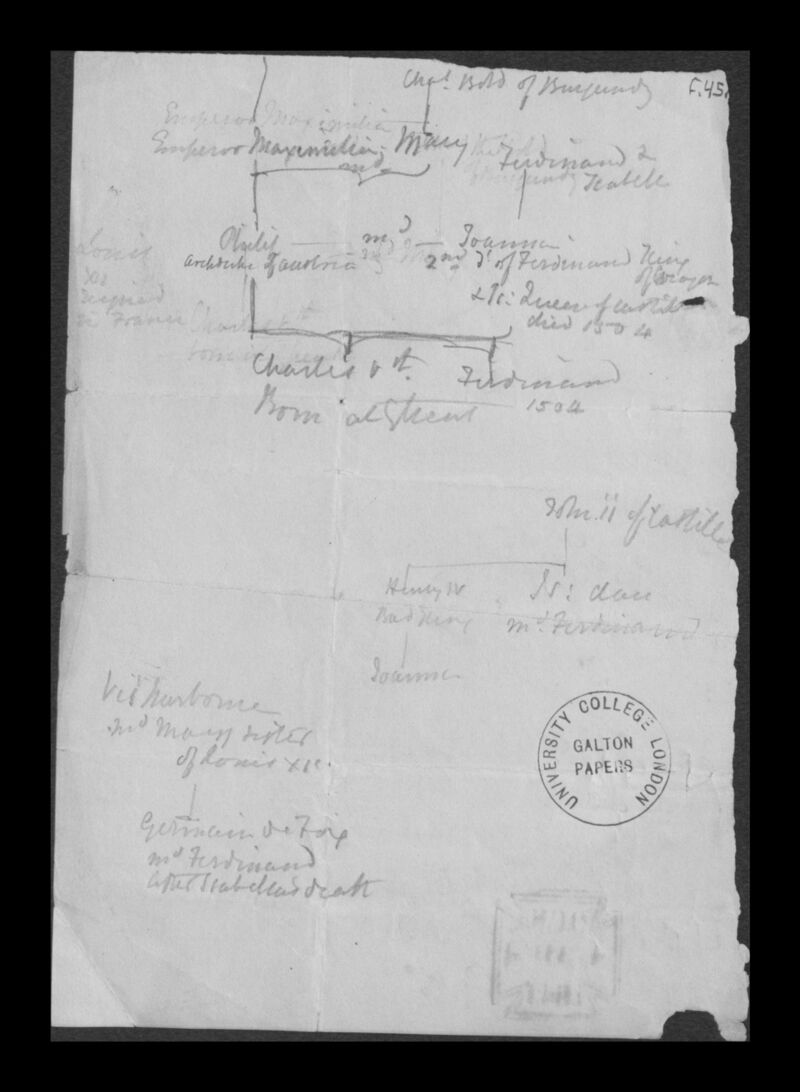 F.45.
Chas Bold of Burgundy
Emperor Maximilia
Emperor Maximilia - Mary
md
Ferdinand &
Isabell
Philip md Joanna
archduke of austria 2nd dr of Ferdinand King
of
& Is: Queen of Castile
died 1504
Louis
XII
reigned
in France
Charles Vth Ferdinand
Born at Ghent 1504
John II of Castille
Henry IV Is: dau
Bad King md Ferdinand
Joanna
Vist Narbonne
md Mary sister
of Louis XII
Germain de Foix
md Ferdinand
after Isabellas death
UNIVERSITY COLLEGE LONDON
GALTON
PAPERS